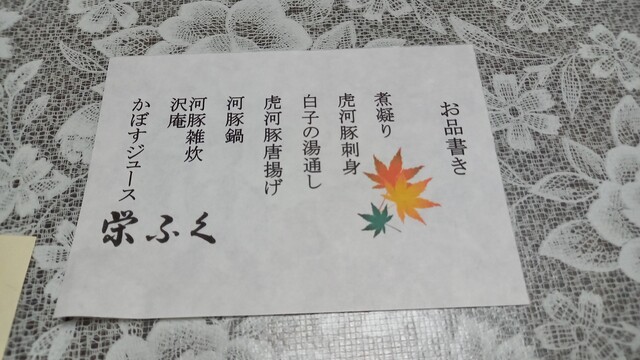 お品書き
煮凝り
虎河豚刺身
白子の湯通し
虎河豚唐揚げ
河豚鍋
河豚雑炊
沢庵
かぼすジュース
栄ふく